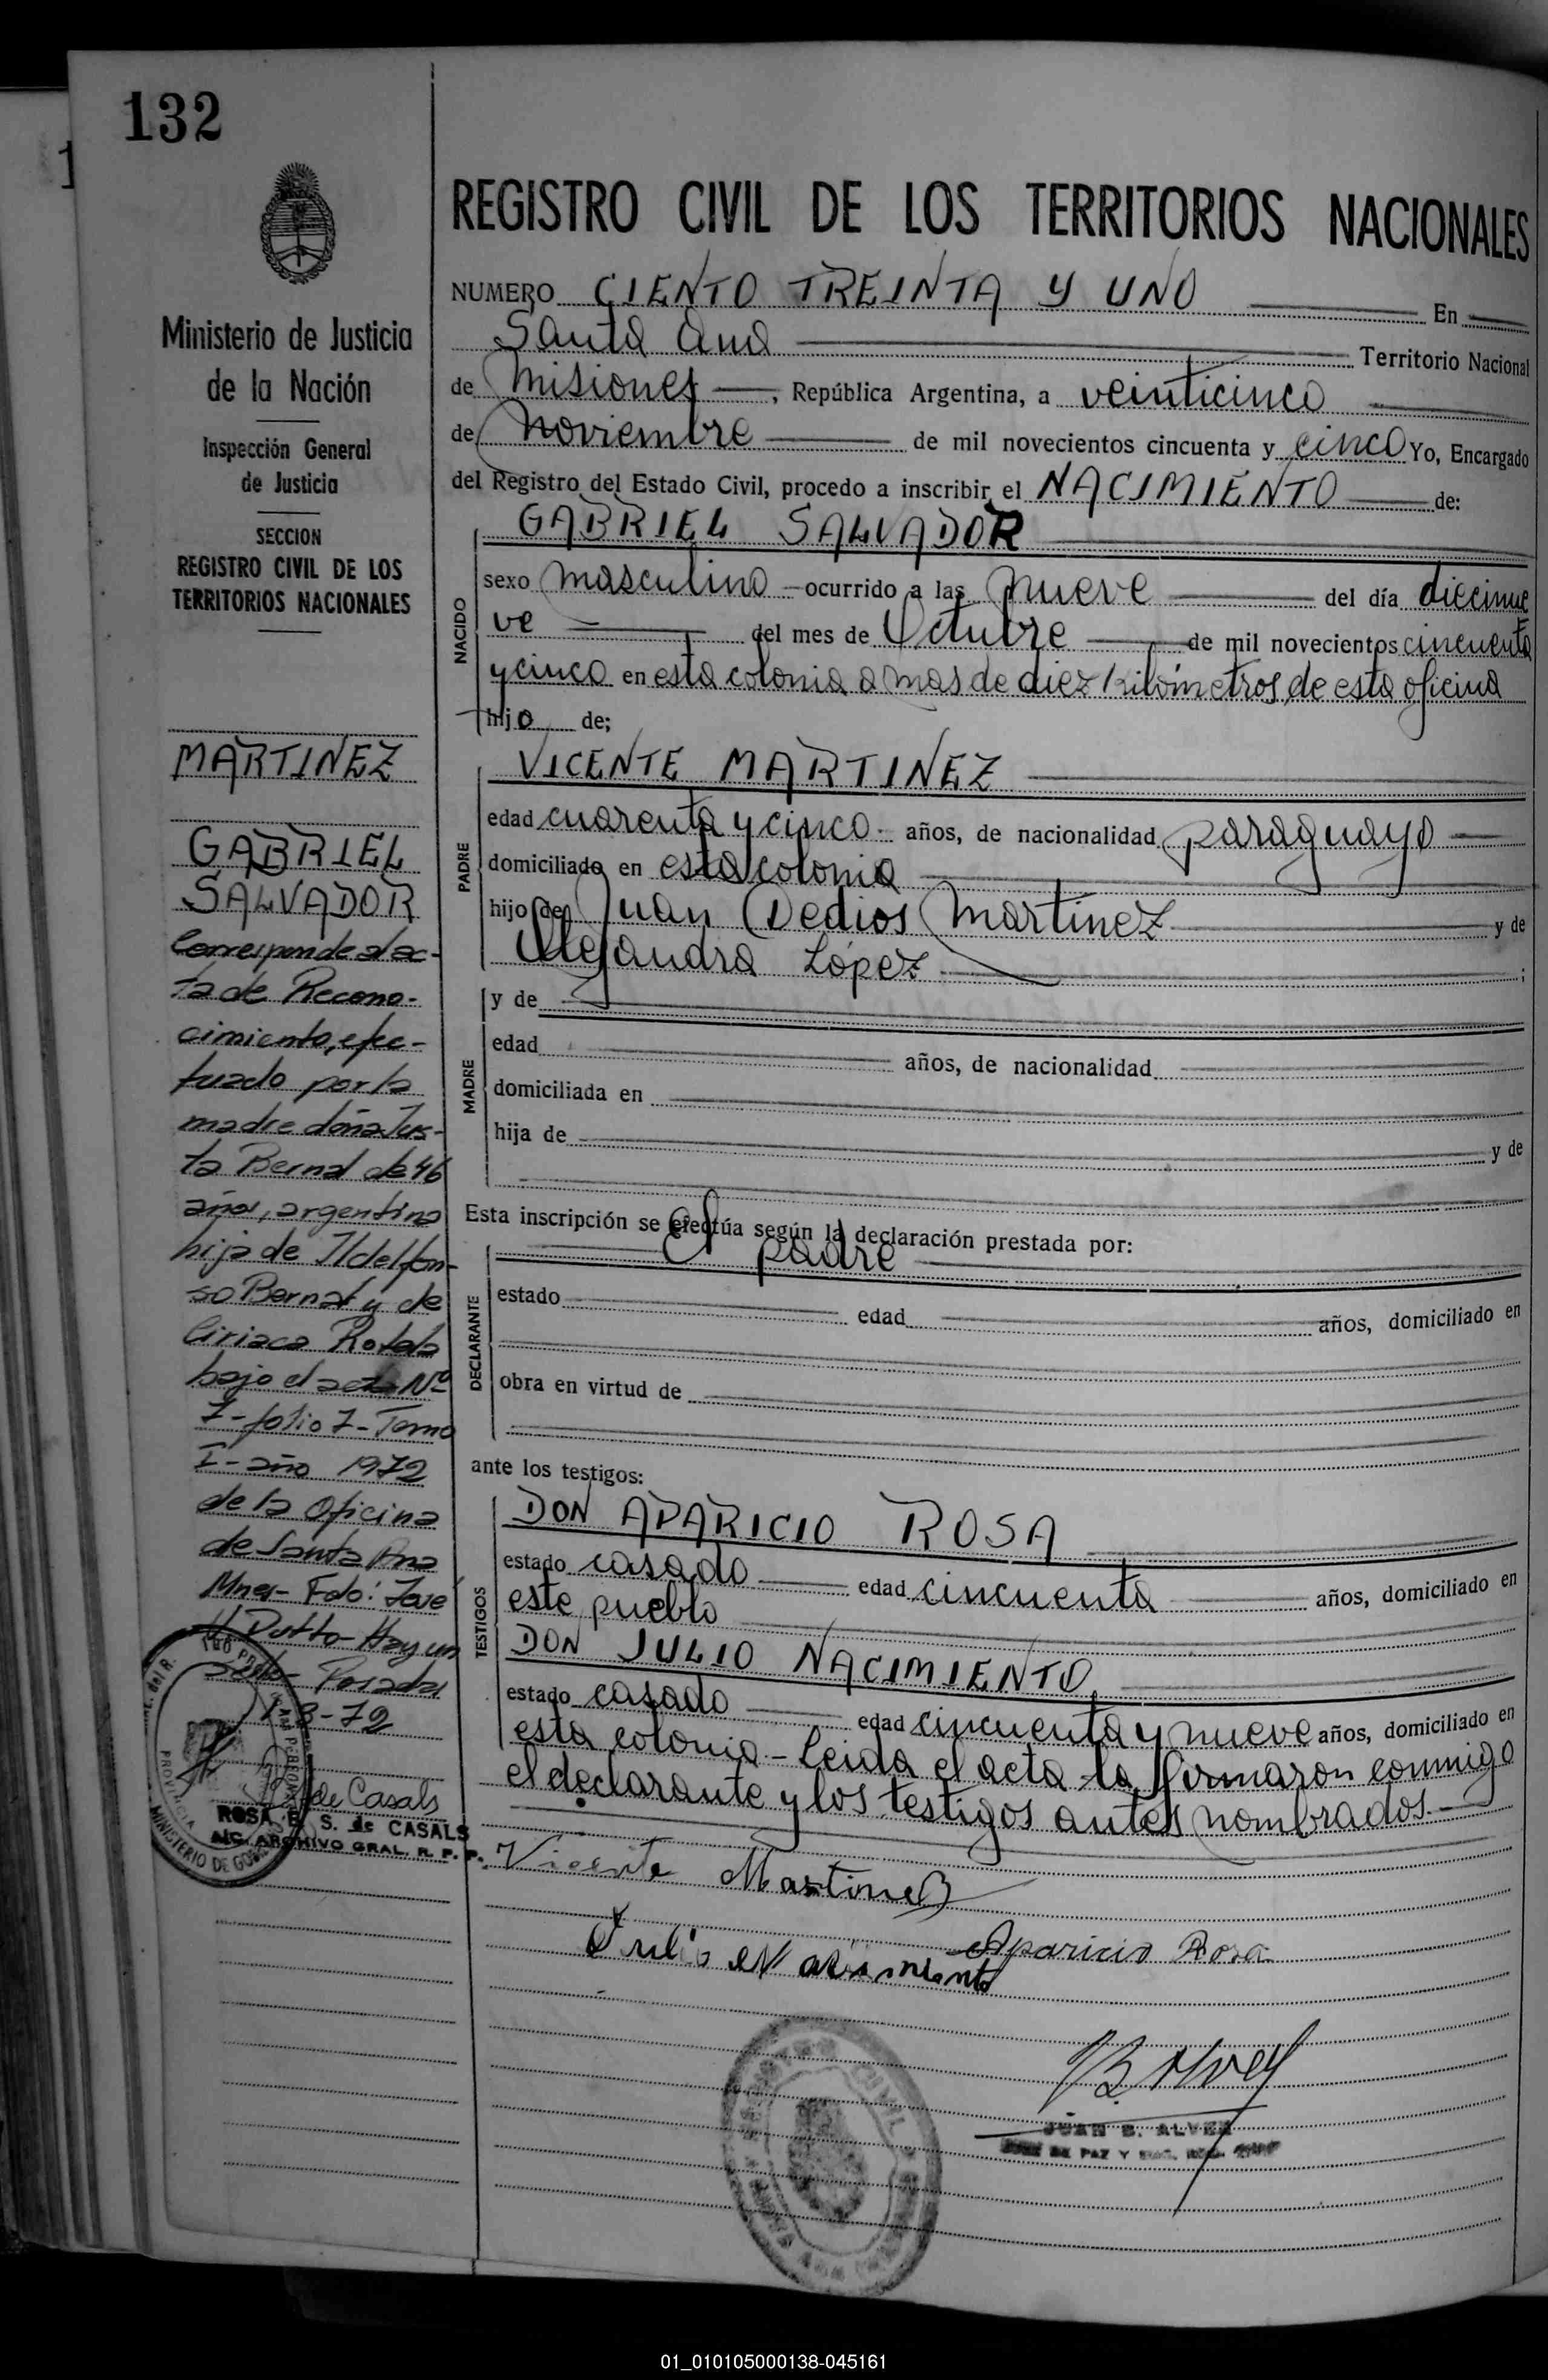 132
Ministerio de Justicia
de la Nación
Inspección General
de Justicia
SECCION
REGISTRO CIVIL DE LOS
TERRITORIOS NACIONALES
MARTINEZ
GABRIEL
SALVADOR
Corresponde al ac-
ta de Recono-
cimiento, efec-
tuado por la
madre doña Jus-
ta Bernal de 46
años, argentina
hija de Ildelfon-
so Bernal y de
Ciriaca
bajo el acta Nº
7-folio 7-Tomo
I-año 1972
de la Oficina
de Santa Ana
Mnes- Fdo: José
Hay un
sello- Posadas
3-72
de Casals
ROSA E. S. de CASALS
A/C. ARCHIVO GRAL. R. P. P.
REGISTRO CIVIL DE LOS TERRITORIOS NACIONALES
NUMERO CIENTO TREINTA Y UNO En
Santa Ana Territorio Nacional
de Misiones, República Argentina, a veinticinco
de Noviembre de mil novecientos cincuenta y cinco Yo, Encargado
del Registro del Estado Civil, procedo a inscribir el NACIMIENTO de:
NACIDO
GABRIEL SALVADOR
sexo masculino ocurrido a las nueve del día diecinue
ve del mes de Octubre de mil novecientos cincuenta
y cinco en esta colonia a mas de diez kilómetros de esta oficina
hijo de;
PADRE
VICENTE MARTINEZ
edad cuarenta y cinco años, de nacionalidad paraguayo
domiciliado en esta colonia
hijo de Juan Dedios Martinez y de
Alejandra López ;
MADRE
y de
edad años, de nacionalidad
domiciliada en
hija de y de
Esta inscripción se efectúa según la declaración prestada por:
DECLARANTE
El padre
estado edad años, domiciliado en
obra en virtud de
ante los testigos:
TESTIGOS
DON APARICIO ROSA
estado casado edad cincuenta años, domiciliado en
este pueblo
DON JULIO NACIMIENTO
estado casado edad cincuenta y nueve años, domiciliado en
esta colonia.- Leida el acta la firmaron conmigo
el declarante y los testigos antes nombrados.-
Vicente Martinez
Aparicio Rosa
Julio Nacimiento
JUAN B. ALVEZ
JUEZ DE PAZ Y
01_010105000138-045161